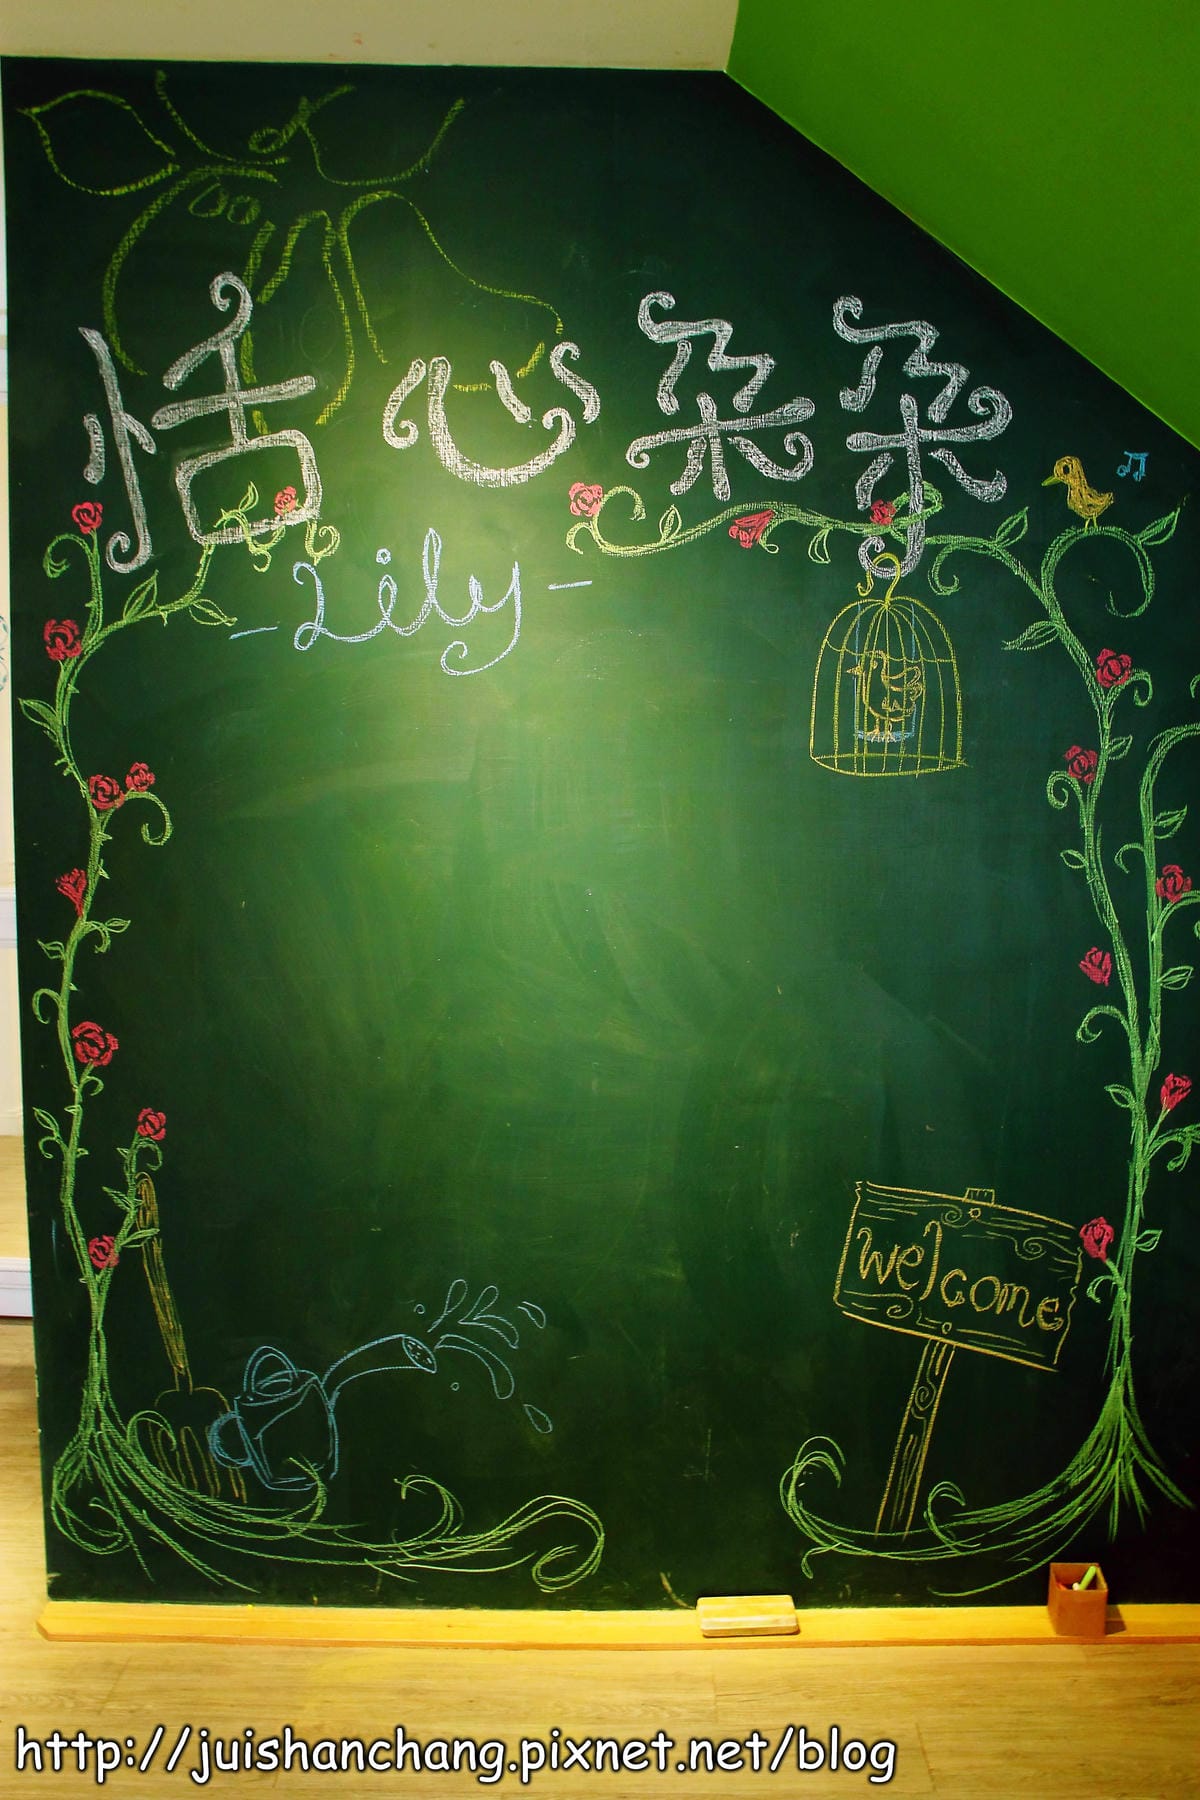 恬心朵朵
-Lily-
welcome
http://juishanchang.pixnet.net/blog